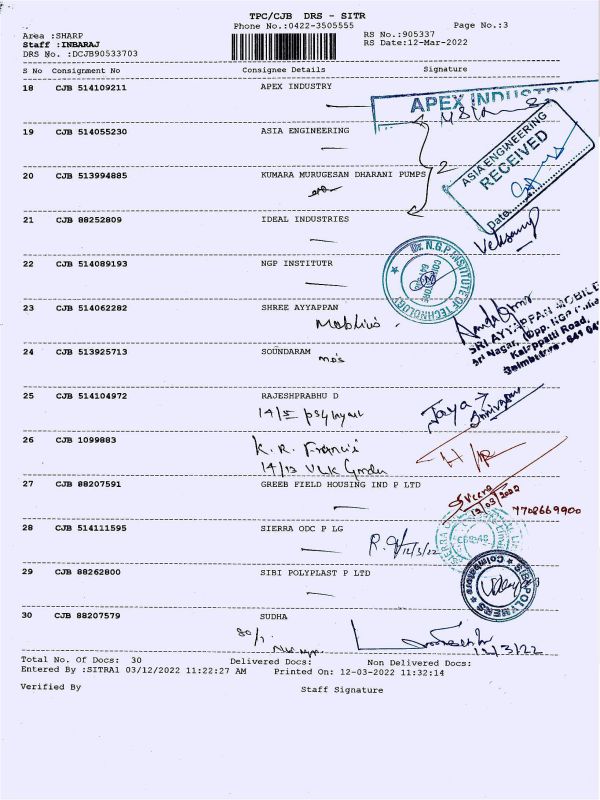 TPC/CJB DRS - SITR
Phone No.:0422-3505555 Page No.:3
Area :SHARP RS No.:905337
Staff :INBARAJ RS Date:12-Mar-2022
DRS No. :DCJB90533703
S No Consignment No Consignee Details Signature
18 CJB 514109211 APEX INDUSTRY
APEX INDUSTRY
19 CJB 514055230 ASIA ENGINEERING
ASIA ENGINEERING
RECEIVED
Date
20 CJB 513994885 KUMARA MURUGESAN DHARANI PUMPS 2
21 CJB 88252809 IDEAL INDUSTRIES
22 CJB 514089193 NGP INSTITUTR
Dr. N.G.P INSTITUTE OF TECHNOLOGY
23 CJB 514062282 SHREE AYYAPPAN
SRI AYYAPPAN MOBILE
Sri Nagar, (Opp. NGP
Kalappatti Road,
Coimbatore - 641
24 CJB 513925713 SOUNDARAM
25 CJB 514104972 RAJESHPRABHU D
Jaya
26 CJB 1099883
K. R.
27 CJB 88207591 GREEB FIELD HOUSING IND P LTD
12/03/2022
7708669900
28 CJB 514111595 SIERRA ODC P LG
12/3/22
SIERRA
29 CJB 88262800 SIBI POLYPLAST P LTD
SIBI POLYMERS
Coimbatore
30 CJB 88207579 SUDHA
12/3/22
Total No. Of Docs: 30 Delivered Docs: Non Delivered Docs:
Entered By :SITRA1 03/12/2022 11:22:27 AM Printed On: 12-03-2022 11:32:14
Verified By Staff Signature